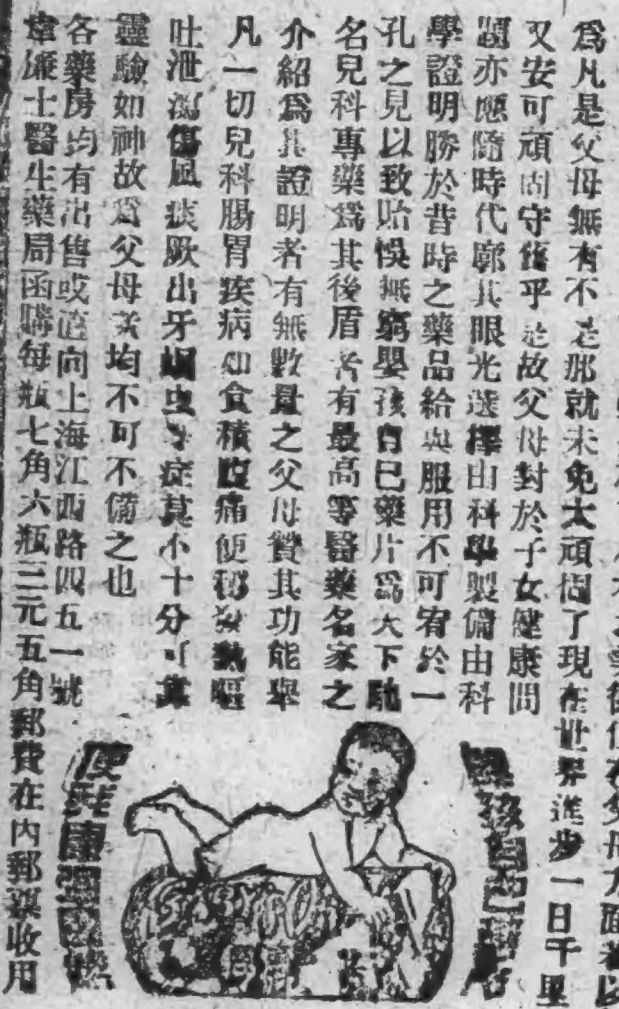 為凡是父母無有不是那就未免太頑固了現在世界進步一日千里
又安可頑固守舊乎是故父母對於子女健康問
題亦應隨時代廓其眼光選擇由科學製備由科
學證明勝於昔時之藥品給與服用不可宥於一
孔之見以致貽悞無窮嬰孩自己藥片為天下馳
名兒科專藥為其後盾者有最高等醫藥名家之
介紹為其證明者有無數量之父母贊其功能舉
凡一切兒科腸胃疾病如食積腹痛便秘發熱嘔
吐泄瀉傷風痰厥出牙蛔虫等症莫不十分可靠
靈驗如神故為父母者均不可不備之也
各藥房均有出售或逕向上海江西路四五一號
韋廉士醫生藥局函購每瓶七角六瓶三元五角郵費在內郵票收用
嬰孩自己藥片
使